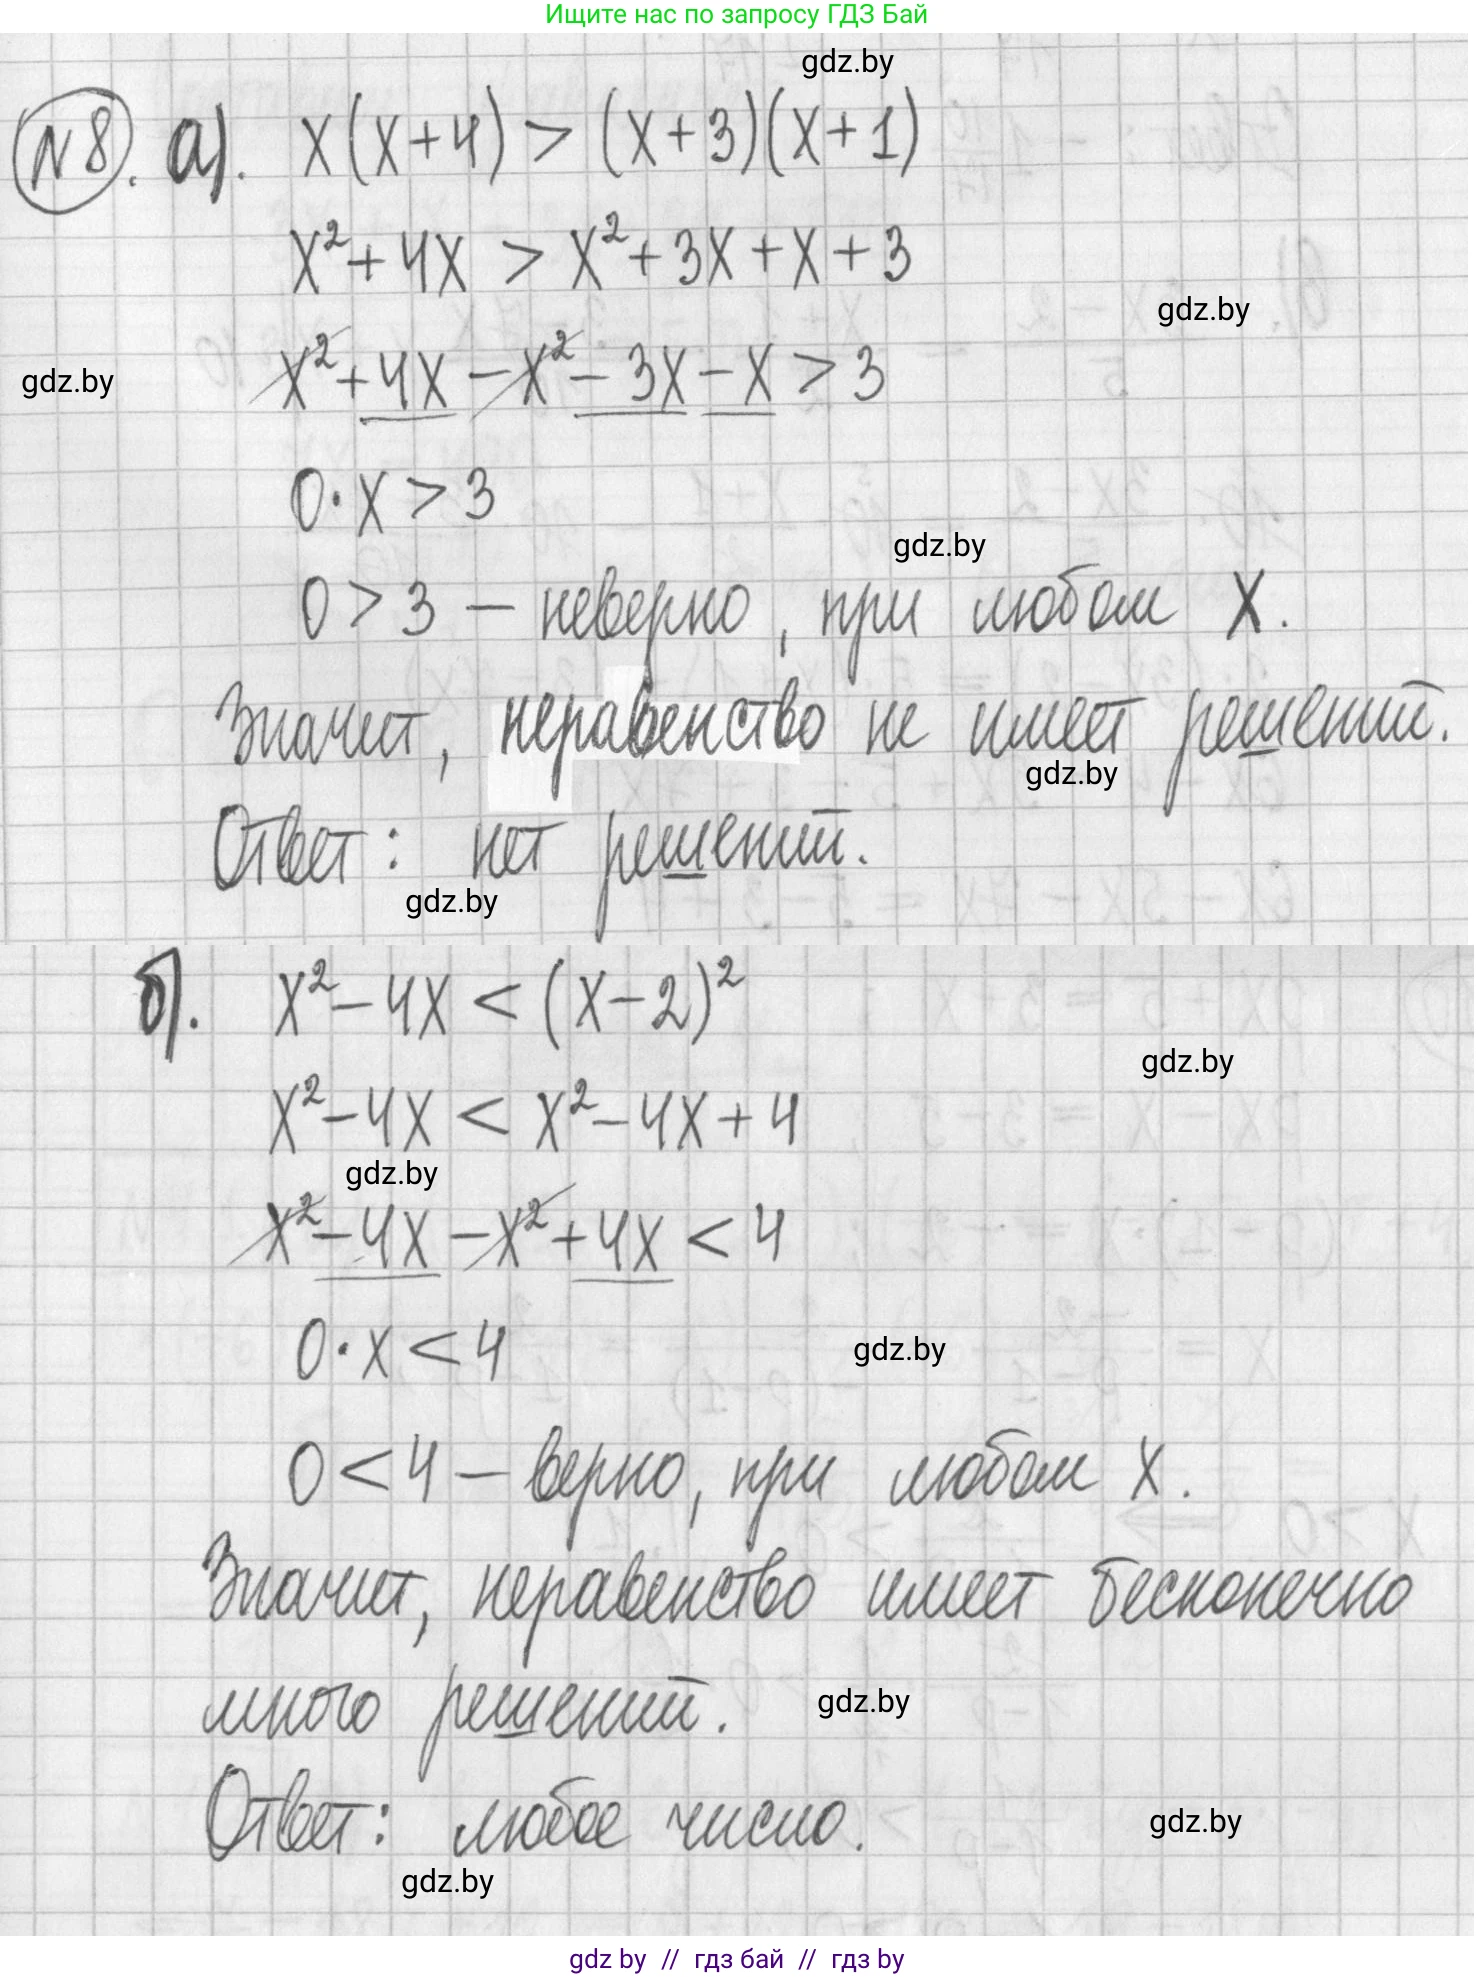 Ищите нас по запросу ГДЗ Бай
gdz.by
№8. а). x(x+4) > (x+3)(x+1)
x²+4x > x²+3x+x+3
gdz.by
x²+4x-x²-3x-x > 3
gdz.by
0·x > 3
gdz.by
0 > 3 — неверно, при любом x.
Значит, неравенство не имеет решений.
gdz.by
Ответ: нет решений.
gdz.by
б). x²-4x < (x-2)²
gdz.by
x²-4x < x²-4x+4
gdz.by
x²-4x-x²+4x < 4
0·x < 4
gdz.by
0 < 4 — верно, при любом x.
Значит, неравенство имеет бесконечно
много решений.
gdz.by
Ответ: любое число.
gdz.by
gdz.by
gdz by // гдз бай // гдз by